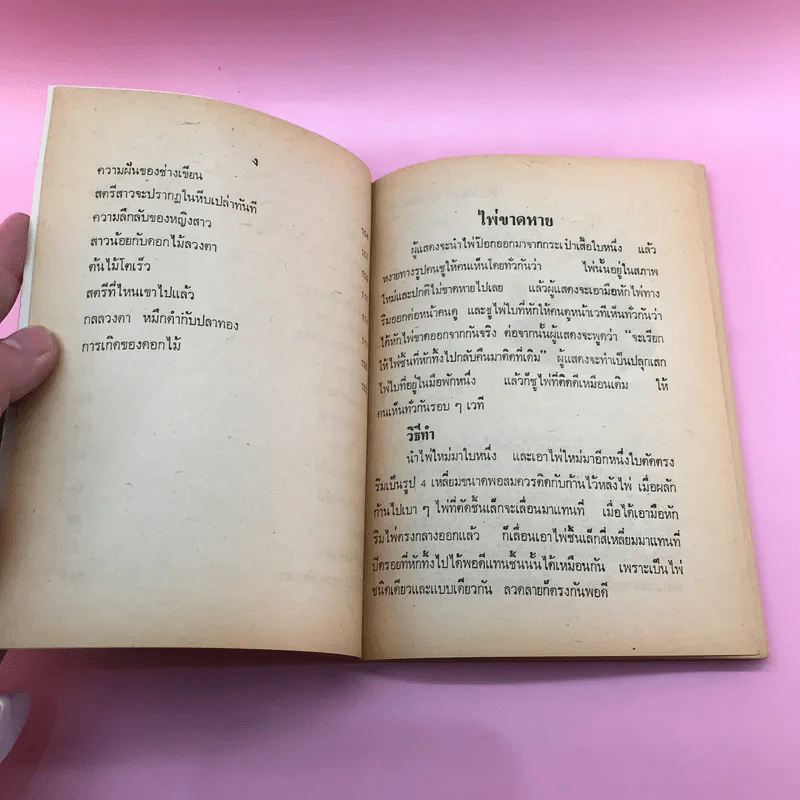 ง
ความฝันของช่างเขียน
สตรีสาวจะปรากฏในหีบเปล่าทันที
ความลึกลับของหญิงสาว
สาวน้อยกับดอกไม้ลวงตา
ต้นไม้โตเร็ว
สตรีที่ไหนเขาไปแล้ว
กลลวงตา หมึกดำกับปลาทอง
การเกิดของดอกไม้
ไพ่ขาดหาย
ผู้แสดงจะนำไพ่ป๊อกออกมาจากกระเป๋าเสื้อใบหนึ่ง แล้ว
หงายทางรูปคนชูให้คนเห็นโดยทั่วกันว่า ไพ่นั้นอยู่ในสภาพ
ใหม่และปกติไม่ขาดหายไปเลย แล้วผู้แสดงจะเอามือหักไพ่ทาง
ริมออกต่อหน้าคนดู และชูไพ่ใบที่หักให้คนดูหน้าเวทีเห็นทั่วกันว่า
ได้หักไพ่ขาดออกจากกันจริง ต่อจากนั้นผู้แสดงจะพูดว่า “จะเรียก
ให้ไพ่ชิ้นที่หักทิ้งไปกลับคืนมาติดที่เดิม” ผู้แสดงจะทำเป็นปลุกเสก
ไพ่ใบที่อยู่ในมือพักหนึ่ง แล้วก็ชูไพ่ที่ติดดีเหมือนเดิม ให้
คนเห็นทั่วกันรอบ ๆ เวที
วิธีทำ
นำไพ่ใหม่มาใบหนึ่ง และเอาไพ่ใหม่มาอีกหนึ่งใบตัดตรง
ริมเป็นรูป 4 เหลี่ยมขนาดพอสมควรติดกับก้านไว้หลังไพ่ เมื่อผลัก
ก้านไปเบา ๆ ไพ่ที่ตัดชิ้นเล็กจะเลื่อนมาแทนที่ เมื่อได้เอามือหัก
ริมไพ่ตรงกลางออกแล้ว ก็เลื่อนเอาไพ่ชิ้นเล็กสี่เหลี่ยมมาแทนที่
ปิดรอยที่หักทิ้งไปได้พอดีแทนชิ้นนั้นได้เหมือนกัน เพราะเป็นไพ่
ชนิดเดียวและแบบเดียวกัน ลวดลายก็ตรงกันพอดี